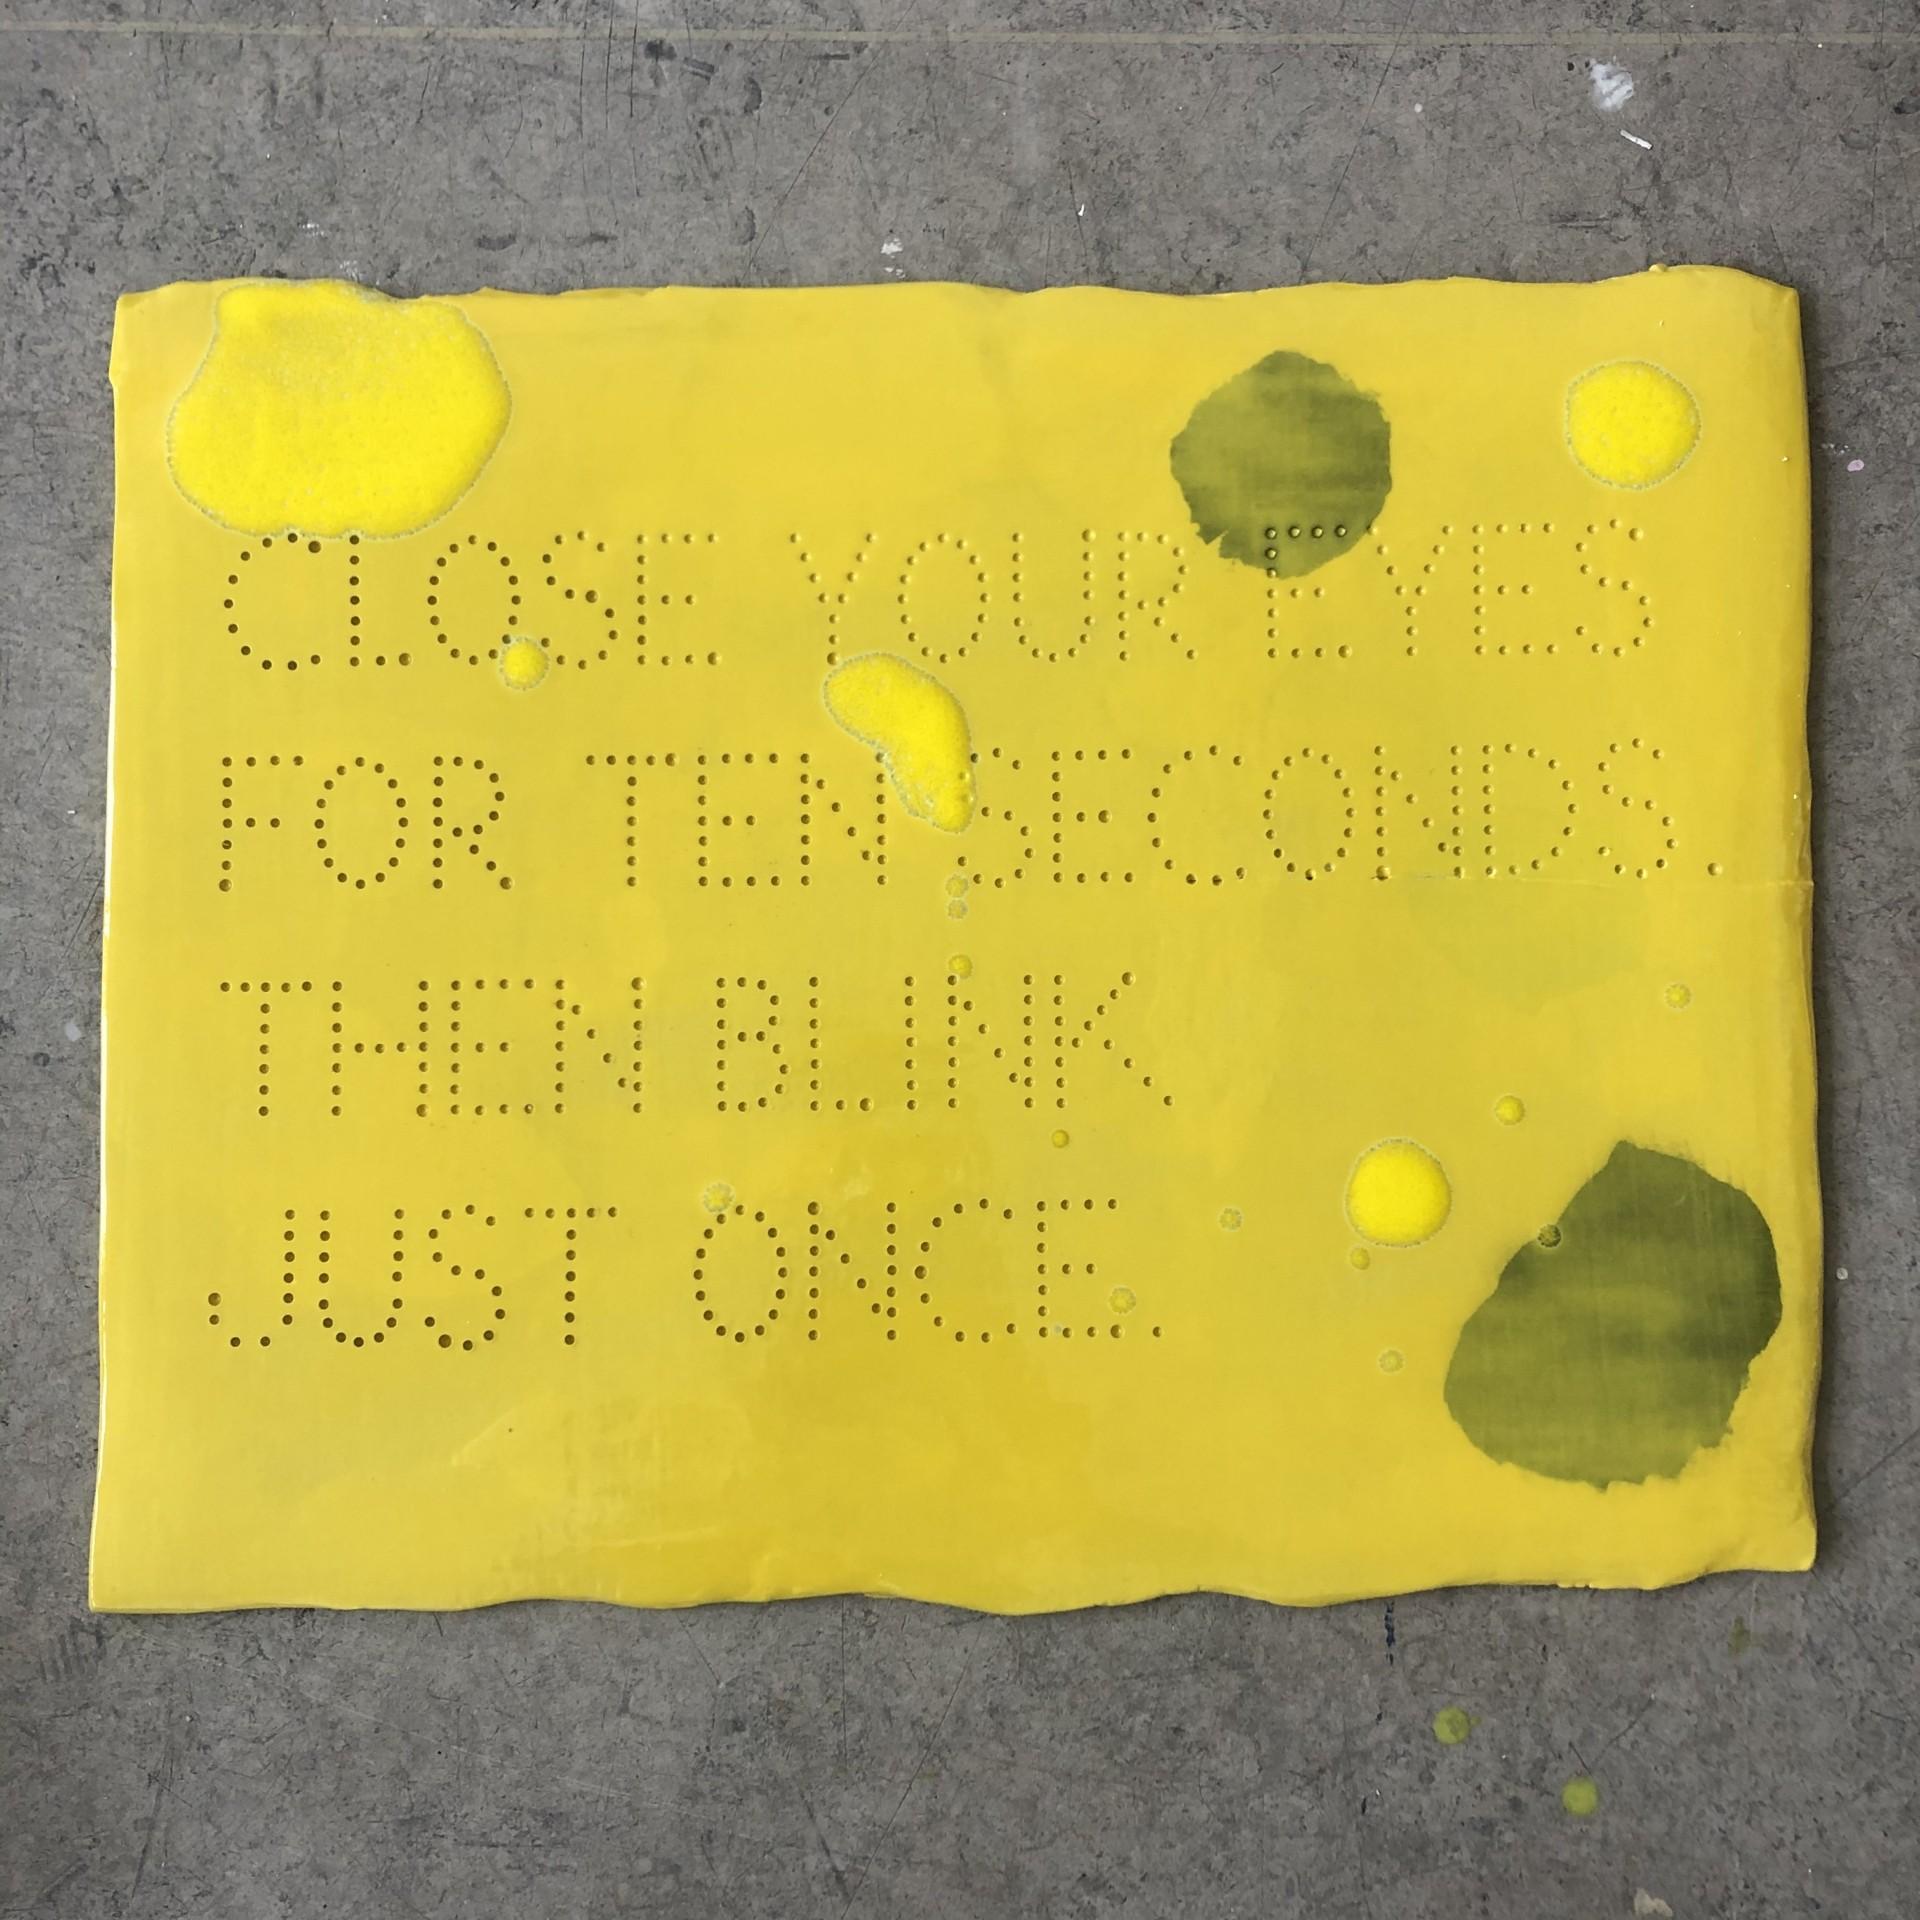 CLOSE YOUR EYES
FOR TEN SECONDS.
THEN BLINK
JUST ONCE.